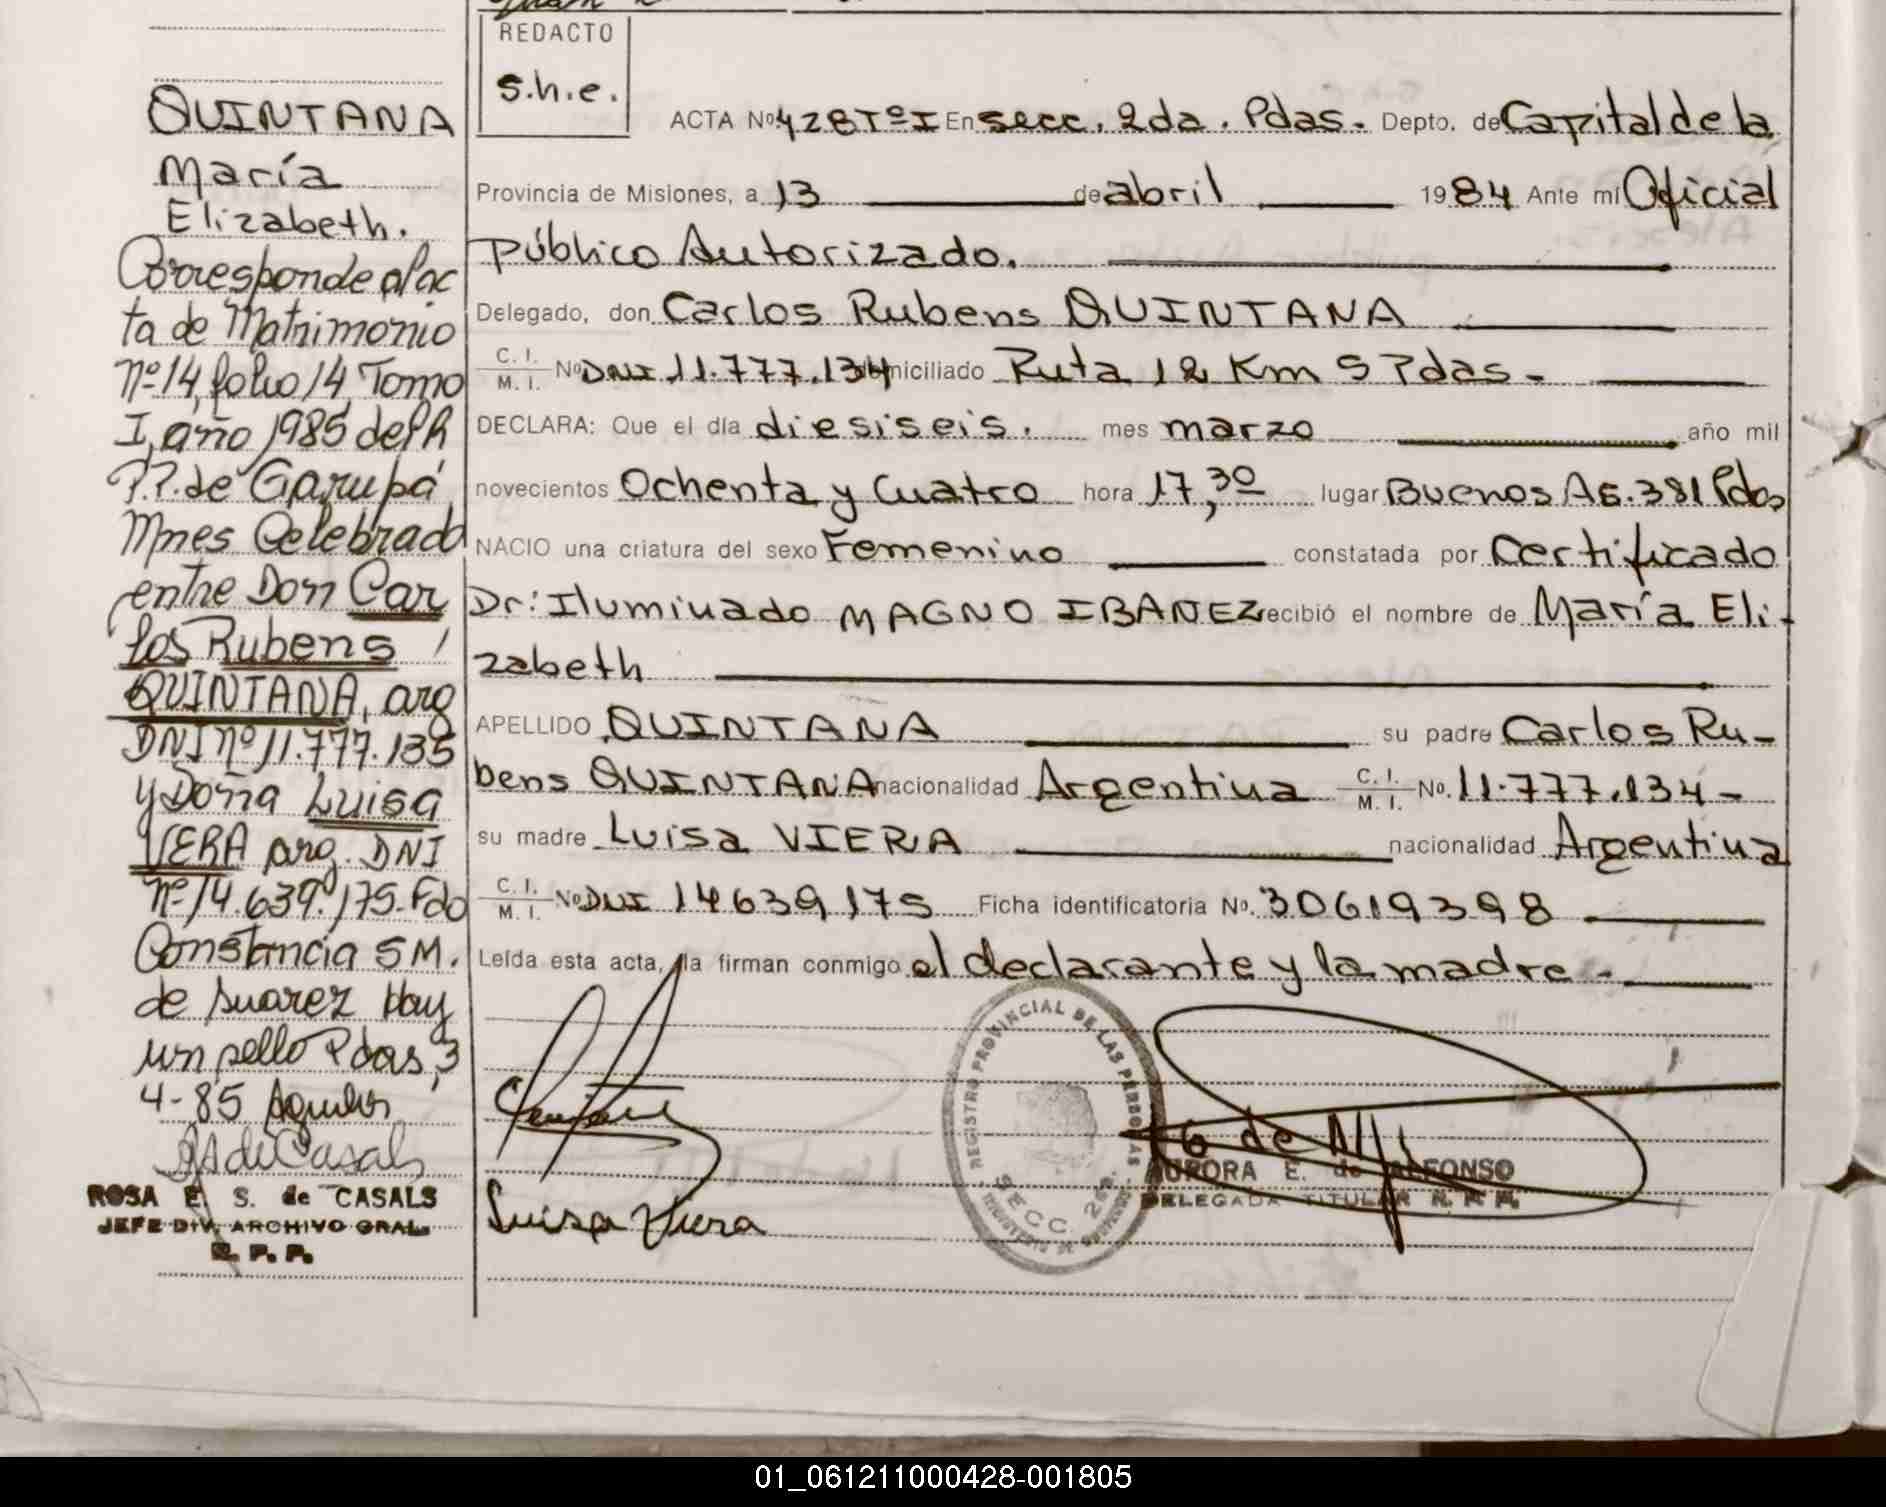 REDACTO
s.h.e.
QUINTANA
María
Elizabeth.
Corresponde al ac
ta de Matrimonio
Nº 14, folio 14, Tomo
I, año 1985 del R
P.P. de Garupá
Mnes Celebrado
entre Don Car
los Rubens
QUINTANA, arg
DNI nº 11.777.135
y Doña Luisa
VERA arg. DNI
Nº 14.639.175. Fdo
Constancia S M.
de Suarez Hay
un sello Pdas, 3
4-85
ROSA E. S. de CASALS
JEFE DIV. ARCHIVO GRAL.
R. P. P.
ACTA Nº 428 Tº I En secc. 2da. Pdas. Depto. de Capital de la
Provincia de Misiones, a 13 de abril 1984 Ante mí Oficial
Público Autorizado.
Delegado, don Carlos Rubens QUINTANA
C. I. M. I. Nº DNI 11.777.134 domiciliado Ruta 12 Km 5 Pdas-
DECLARA: Que el día diesiseis. mes marzo año mil
novecientos Ochenta y Cuatro hora 17,30 lugar Buenos As. 381 Pdas
NACIO una criatura del sexo Femenino constatada por Certificado
Dr: Iluminado MAGNO IBANEZ recibió el nombre de María Eli-
zabeth
APELLIDO QUINTANA su padre Carlos Ru-
bens QUINTANA nacionalidad Argentina C. I. M. I. Nº. 11.777.134-
su madre Luisa VIERA nacionalidad Argentina
C. I. M. I. Nº DNI 14639175 Ficha identificatoria Nº. 30619398
Leída esta acta, la firman conmigo el declarante y la madre-
REGISTRO PROVINCIAL DE LAS PERSONAS
SECC. 2da.
AURORA E. de ALFONSO
DELEGADA TITULAR R. P. P.
Luisa Viera
01_061211000428-001805